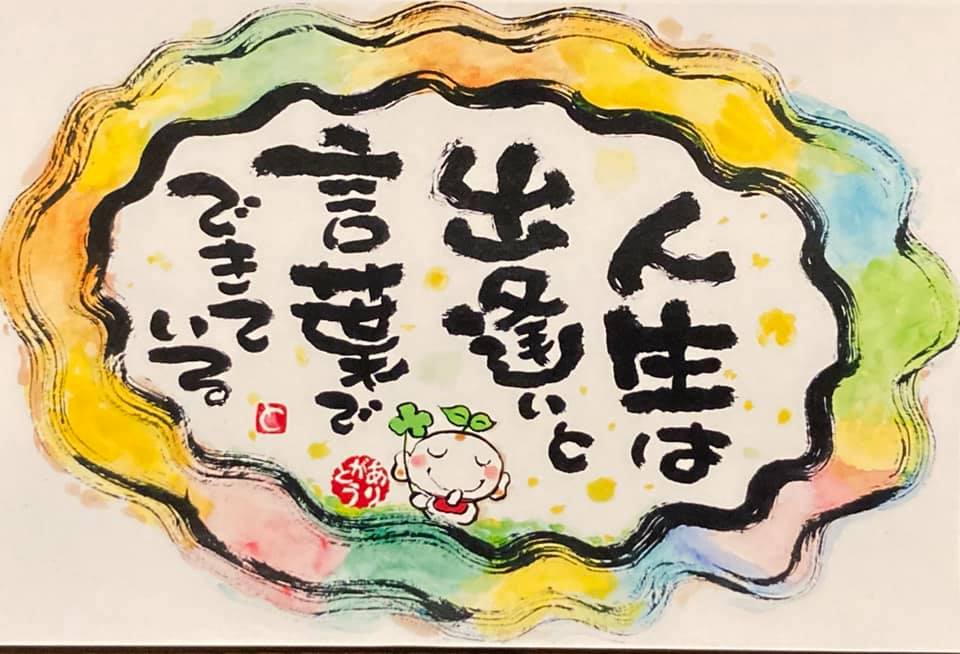 人生は
出逢いと
言葉で
できている
と
ありがとう